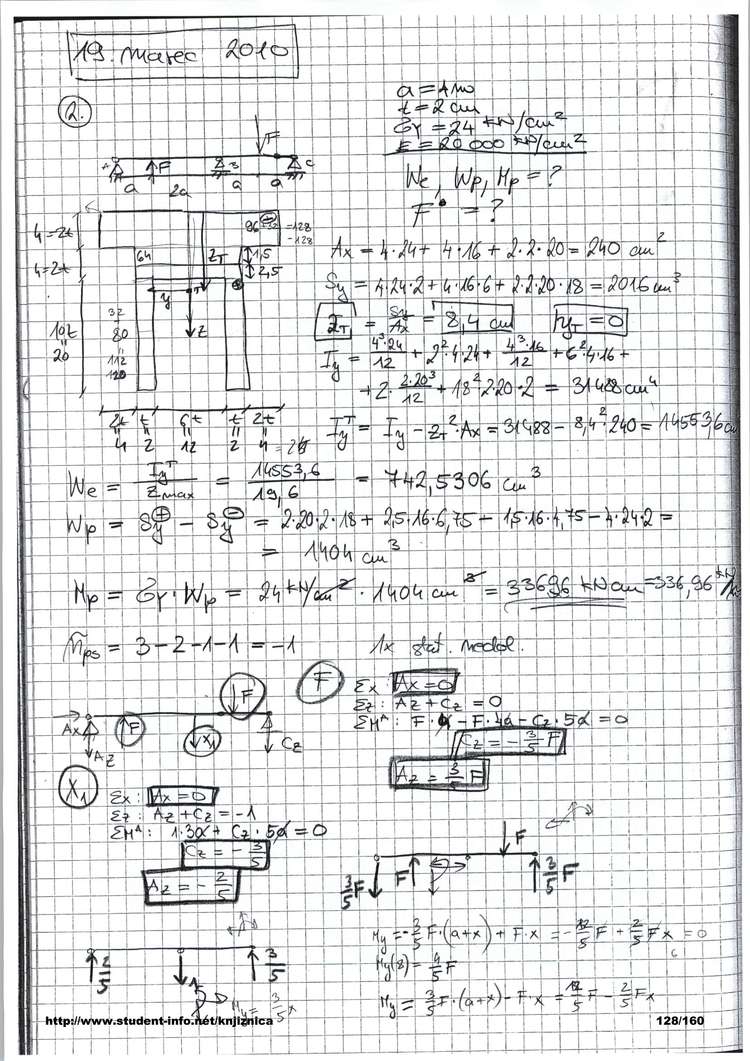 19. marec 2010
2.
a = 4 m
t = 2 cm
σY = 24 kN/cm²
E = 20 000 kN/cm²
We, Wp, Mp = ?
F = ?
A F B F C
a 2a a a
4=2t
4=2t
10t
20
64
96 +32 =128
-128
1,5
2,5
ZT
y T
z
32
80
112
128
2t t 6t t 2t
4 2 12 2 4 = 24
Ax = 4·24 + 4·16 + 2·2·20 = 240 cm²
Sy = 4·24·2 + 4·16·6 + 2·2·20·18 = 2016 cm³
ZT = Sy/Ax = 8,4 cm yT = 0
Iy = 4³·24/12 + 2²·4·24 + 4³·16/12 + 6²·4·16 +
+ 2·2·20³/12 + 18²·2·20·2 = 31488 cm⁴
IyT = Iy - ZT²·Ax = 31488 - 8,4²·240 = 14553,6 cm
We = IyT/Zmax = 14553,6/19,6 = 742,5306 cm³
Wp = Sy⊕ - Sy⊖ = 2·20·2·18 + 2,5·16·6,75 - 1,5·16·4,75 - 4·24·2 =
= 1404 cm³
Mp = σY·Wp = 24 kN/cm² · 1404 cm³ = 33696 kNcm = 336,96 kN
ñps = 3 - 2 - 1 - 1 = -1 1x stat. nedol.
F
Σx: Ax = 0
Σz: Az + Cz = 0
ΣMA: F·a - F·4a - Cz·5a = 0
Cz = -3/5 F
Az = 3/5 F
Ax Az F X1 F Cz
X1
Σx: Ax = 0
Σz: Az + Cz = -1
ΣMA: 1·3a + Cz·5a = 0
Cz = -3/5
Az = -2/5
3/5F F F 3/5F
2/5 1 3/5
My = 3/5x
My = -3/5F·(a+x) + F·x = -12/5F + 2/5Fx = 0
My(8) = 4/5F
My = 3/5F·(a+x) - F·x = 12/5F - 2/5Fx
http://www.student-info.net/knjiznica
128/160